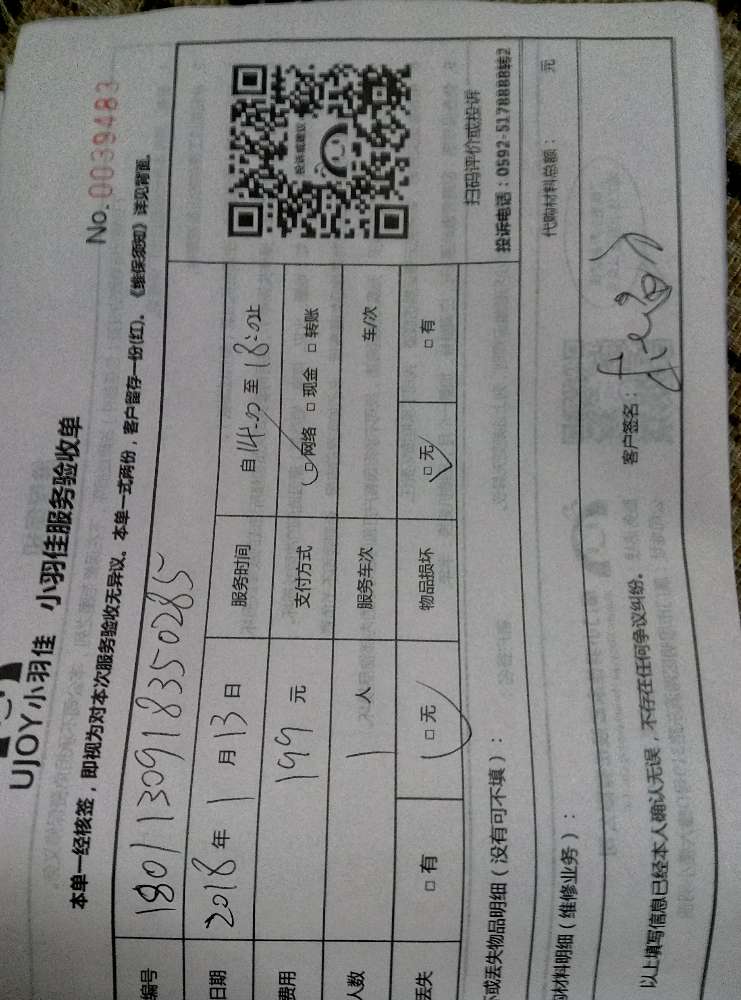 UJOY小羽佳 小羽佳服务验收单
No. 0039483
本单一经核签，即视为对本次服务验收无异议。本单一式两份，客户留存一份(红)。《维保须知》详见背面。
编号 1801130918350285
日期 2018年1月13日 服务时间 自14:00至18:00止
费用 199元 支付方式 □网络 □现金 □转账
人数 1人 服务车次 车/次
丢失 □有 □无 物品损坏 □无 □有
投诉或建议
扫码评价或投诉
投诉电话：0592-5178888转2
或丢失物品明细（没有可不填）：
材料明细（维修业务）： 代购材料总额： 元
以上填写信息已经本人确认无误，不存在任何争议纠纷。 客户签名：